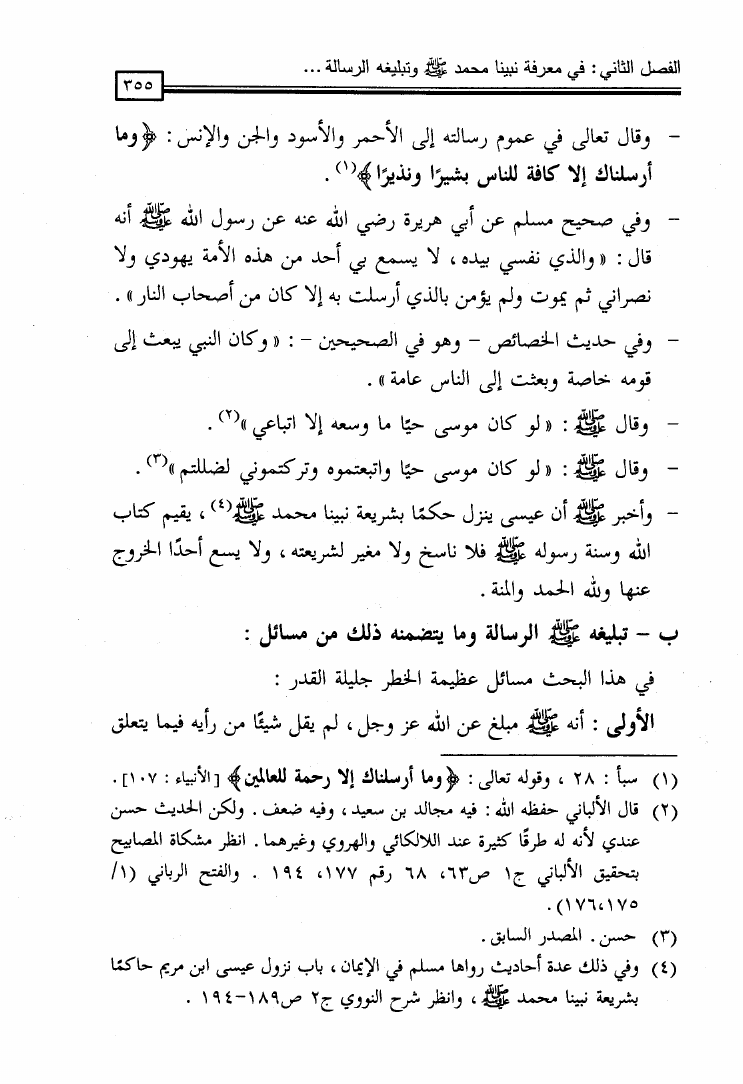 الفصل الثاني: في معرفة نبينا محمد ﷺ وتبليغه الرسالة ...
٣٥٥
- وقال تعالى في عموم رسالته إلى الأحمر والأسود والجن والإنس: ﴿وما
أرسلناك إلا كافة للناس بشيرًا ونذيرًا﴾(١).
- وفي صحيح مسلم عن أبي هريرة رضي الله عنه عن رسول الله ﷺ أنه
قال: «والذي نفسي بيده، لا يسمع بي أحد من هذه الأمة يهودي ولا
نصراني ثم يموت ولم يؤمن بالذي أرسلت به إلا كان من أصحاب النار».
- وفي حديث الخصائص - وهو في الصحيحين -: «وكان النبي يبعث إلى
قومه خاصة وبعثت إلى الناس عامة».
- وقال ﷺ: «لو كان موسى حيًا ما وسعه إلا اتباعي»(٢).
- وقال ﷺ: «لو كان موسى حيًا واتبعتموه وتركتموني لضللتم»(٣).
- وأخبر ﷺ أن عيسى ينزل حكمًا بشريعة نبينا محمد ﷺ(٤)، يقيم كتاب
الله وسنة رسوله ﷺ فلا ناسخ ولا مغير لشريعته، ولا يسع أحدًا الخروج
عنها ولله الحمد والمنة.
ب - تبليغه ﷺ الرسالة وما يتضمنه ذلك من مسائل:
في هذا البحث مسائل عظيمة الخطر جليلة القدر:
الأولى: أنه ﷺ مبلغ عن الله عز وجل، لم يقل شيئًا من رأيه فيما يتعلق
(١) سبأ: ٢٨، وقوله تعالى: ﴿وما أرسلناك إلا رحمة للعالمين﴾ [الأنبياء: ١٠٧].
(٢) قال الألباني حفظه الله: فيه مجالد بن سعيد، وفيه ضعف. ولكن الحديث حسن
عندي لأنه له طرقًا كثيرة عند اللالكائي والهروي وغيرهما. انظر مشكاة المصابيح
بتحقيق الألباني ج١ ص٦٣، ٦٨ رقم ١٧٧، ١٩٤. والفتح الرباني (١/
١٧٥،١٧٦).
(٣) حسن. المصدر السابق.
(٤) وفي ذلك عدة أحاديث رواها مسلم في الإيمان، باب نزول عيسى ابن مريم حاكمًا
بشريعة نبينا محمد ﷺ، وانظر شرح النووي ج٢ ص١٨٩-١٩٤.